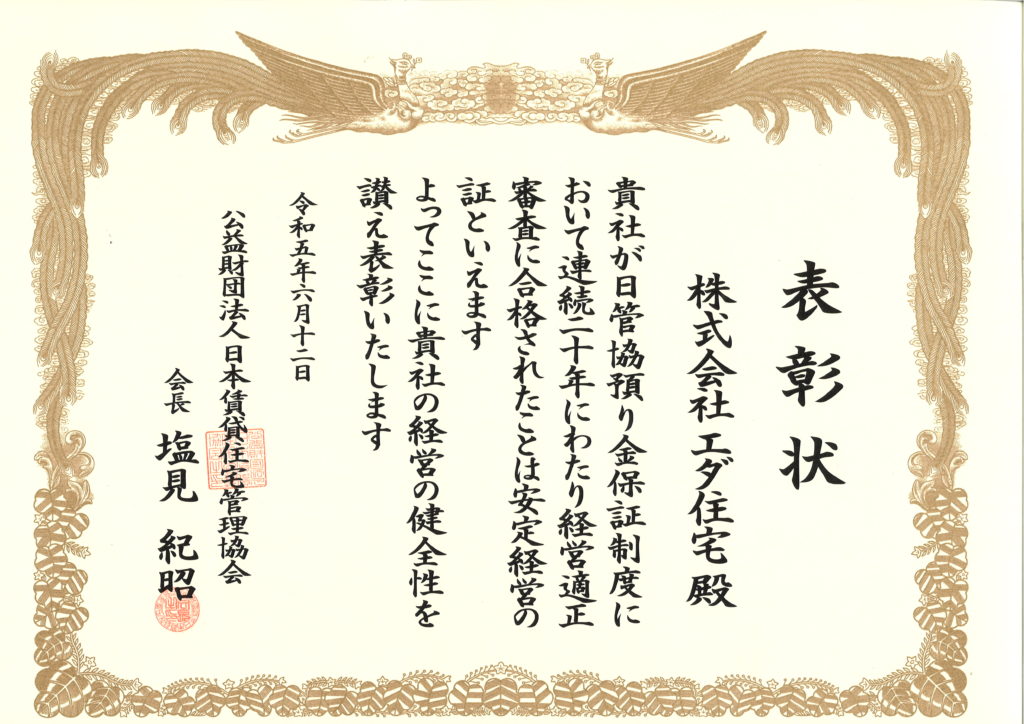 表彰状
株式会社 エダ住宅 殿
貴社が日管協預り金保証制度に
おいて連続二十年にわたり経営適正
審査に合格されたことは安定経営の
証といえます
よってここに貴社の経営の健全性を
讃え表彰いたします
令和五年六月十二日
公益財団法人日本賃貸住宅管理協会
会長 塩見 紀昭